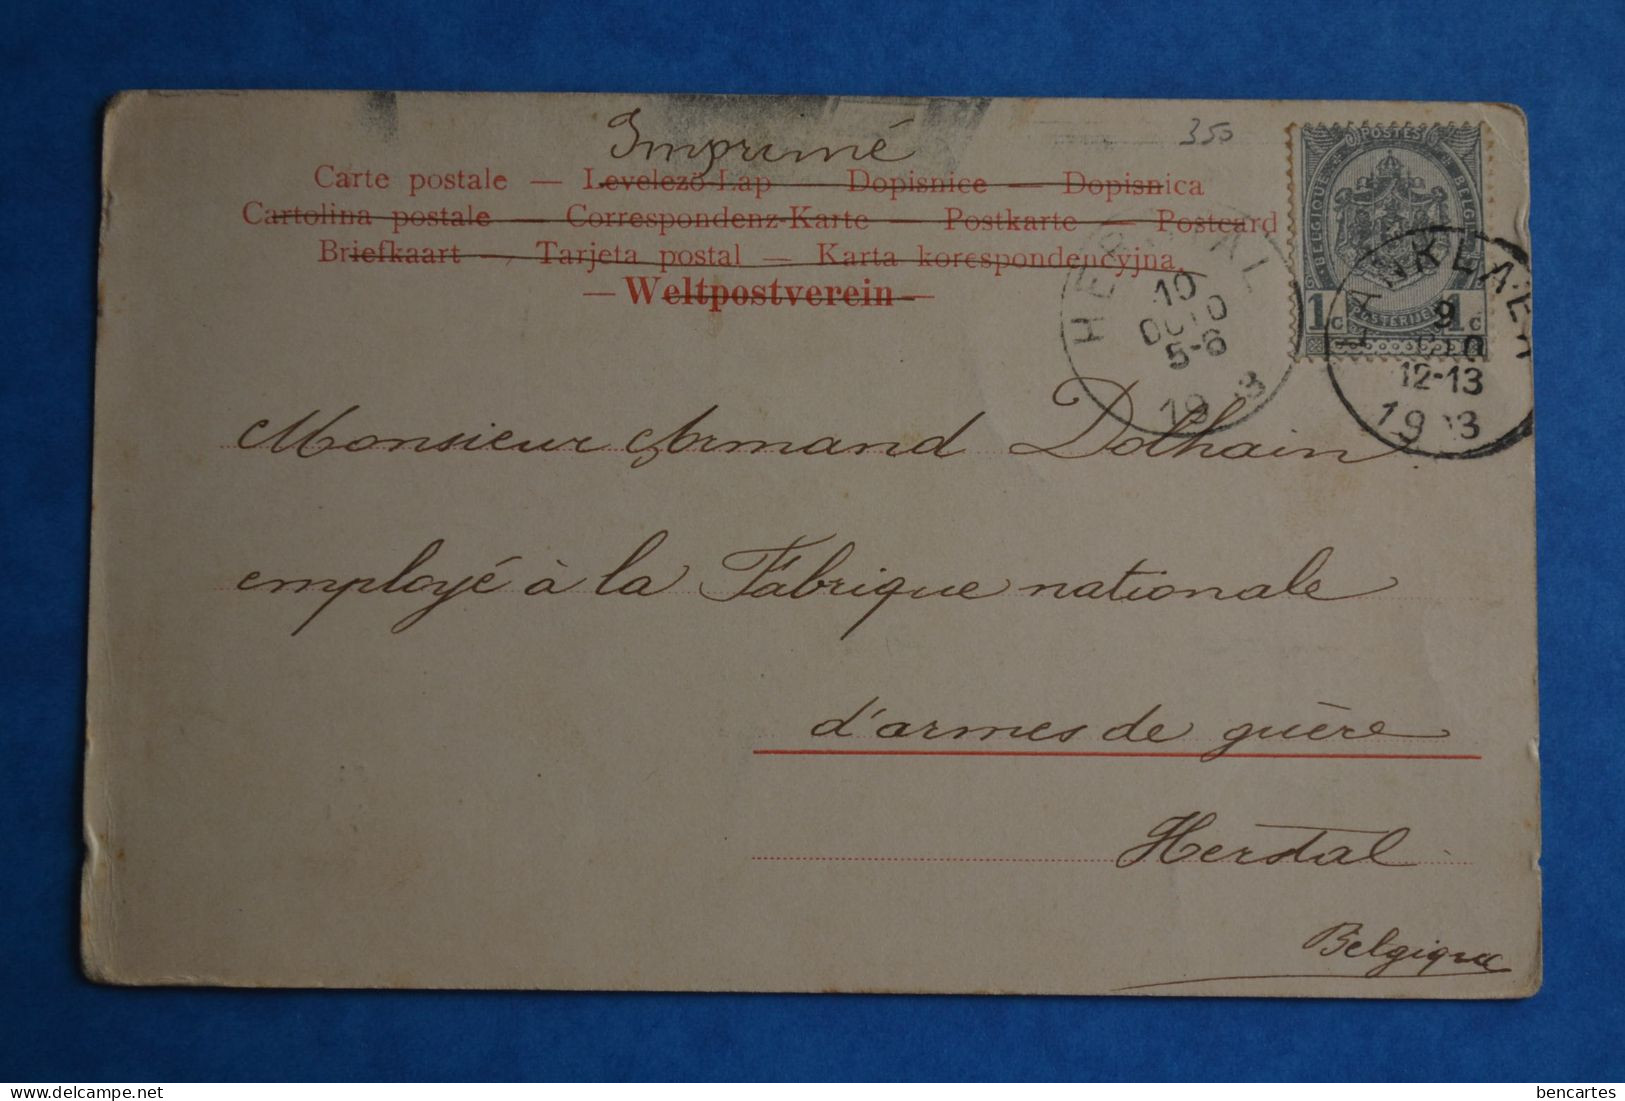 Imprimé
350
Carte postale — Levelező-Lap — Dopisnice — Dopisnica
Cartolina postale — Correspondenz-Karte — Postkarte — Postcard
Briefkaart — Tarjeta postal — Karta korespondencyjna
— Weltpostverein —
POSTES
BELGIQUE BELGIË
1c POSTERIJEN 1c
HERSTAL
10
OCTO
5-6
1903
LANKLAER
9
OCTO
12-13
1903
Monsieur Armand Dolhain
employé à la Fabrique nationale
d'armes de guère
Herstal
Belgique
bencartes